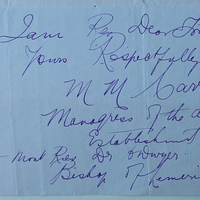 I am Rev Dear
Yours Respectfully
M M
Manageress of the
Establishment
- Most Rev Dr O Dwyer
Bishop of Limeri